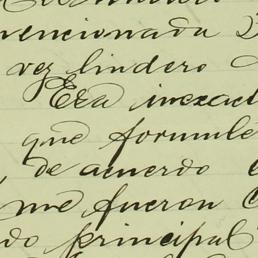 vencionada
vez lindero
Era inexact
que formule
, de acuerdo
me fueron
do principal